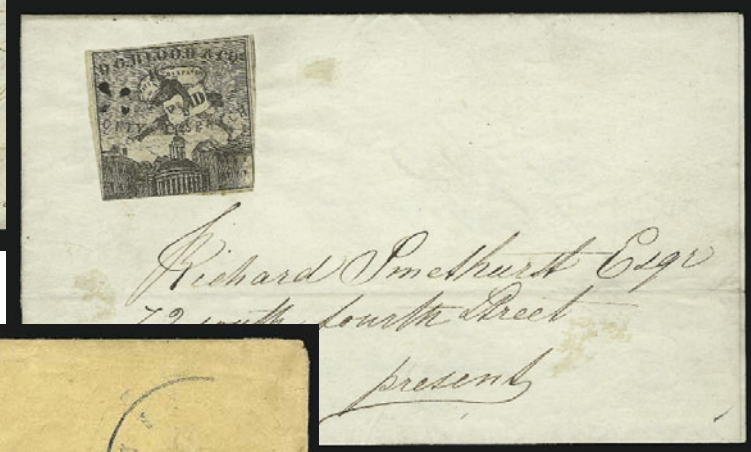 D.O. BLOOD & CO'S
PAID
CITY DESPATCH
Richard Smethurst Esqr
72 south fourth Street
present